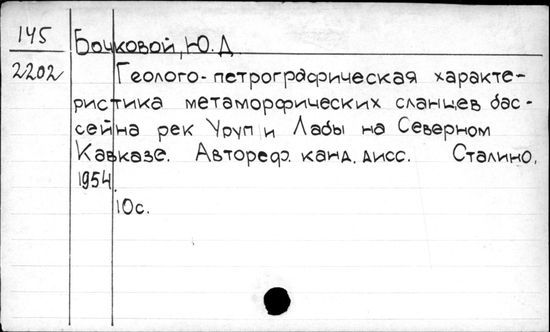 145
Бочковой, Ю. Д.
2202
Геолого-петрографическая характе-
ристика метаморфических сланцев бас-
сейна рек Уруп и Лабы на Северном
Кавказе. Автореф. канд. дисс. Сталино,
1954.
10с.